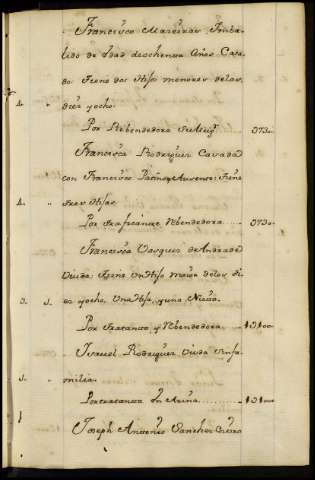 Francisco Mareiras Imba-
lido de hdad de ochenta años Casa-
do tiene dos Hijos menores de los
diez y ocho.
Por Rebendedora su Mug.r 073..
Francisca Rodriguez Casada
con Francisco Ausente: tiene
tres Hijas
Por traficante y Rebendedora 073..
Francisca Vasquez de Andrade
Viuda: tiene un Hijo maior de los di-
ez y ocho, Una Hija, y una Nieta.
Por tratanta, y Rebendedora
Isavel Rodriguez Viuda sin fa-
milia.
Por tratanta En Arina
Joseph Antonio Sanchez